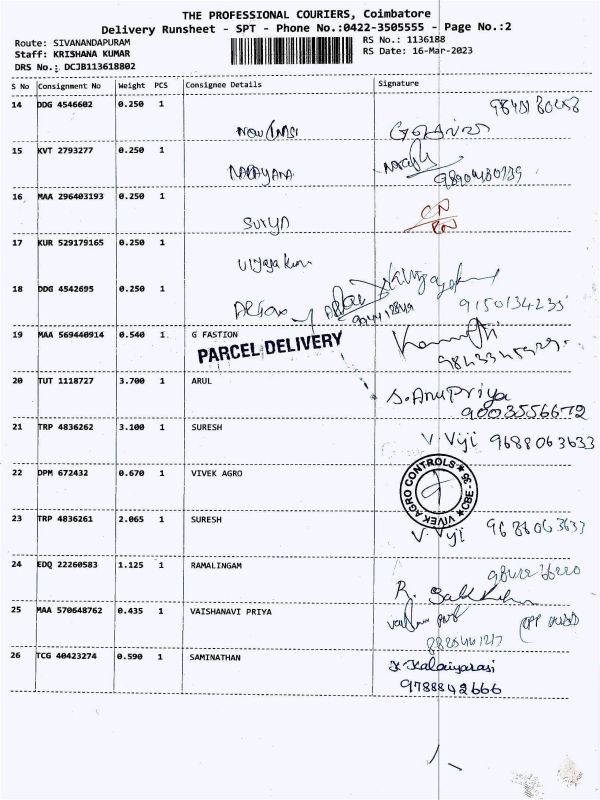 THE PROFESSIONAL COURIERS, Coimbatore
Delivery Runsheet - SPT - Phone No.:0422-3505555 - Page No.:2
Route: SIVANANDAPURAM
RS No.: 1136188
Staff: KRISHANA KUMAR
RS Date: 16-Mar-2023
DRS No.: DCJB113618802
S No Consignment No Weight PCS Consignee Details Signature
14 DDG 4546602 0.250 1
15 KVT 2793277 0.250 1
NARAYANA
16 MAA 296403193 0.250 1
SURYA
17 KUR 529179165 0.250 1
Vijaya kum
18 DDG 4542695 0.250 1
9150134235
19 MAA 569440914 0.540 1 G FASTION
PARCEL DELIVERY
20 TUT 1118727 3.700 1 ARUL
S. Anu Priya
9003556672
21 TRP 4836262 3.100 1 SURESH
V. Viji 9688063633
22 DPM 672432 0.670 1 VIVEK AGRO
VIVEK AGRO CONTROLS ★ CBE - 35 ★
23 TRP 4836261 2.065 1 SURESH
V. Viji 9688063633
24 EDQ 22260583 1.125 1 RAMALINGAM
25 MAA 570648762 0.435 1 VAISHANAVI PRIYA
26 TCG 40423274 0.590 1 SAMINATHAN
K. Kalaiyarasi
9788842666